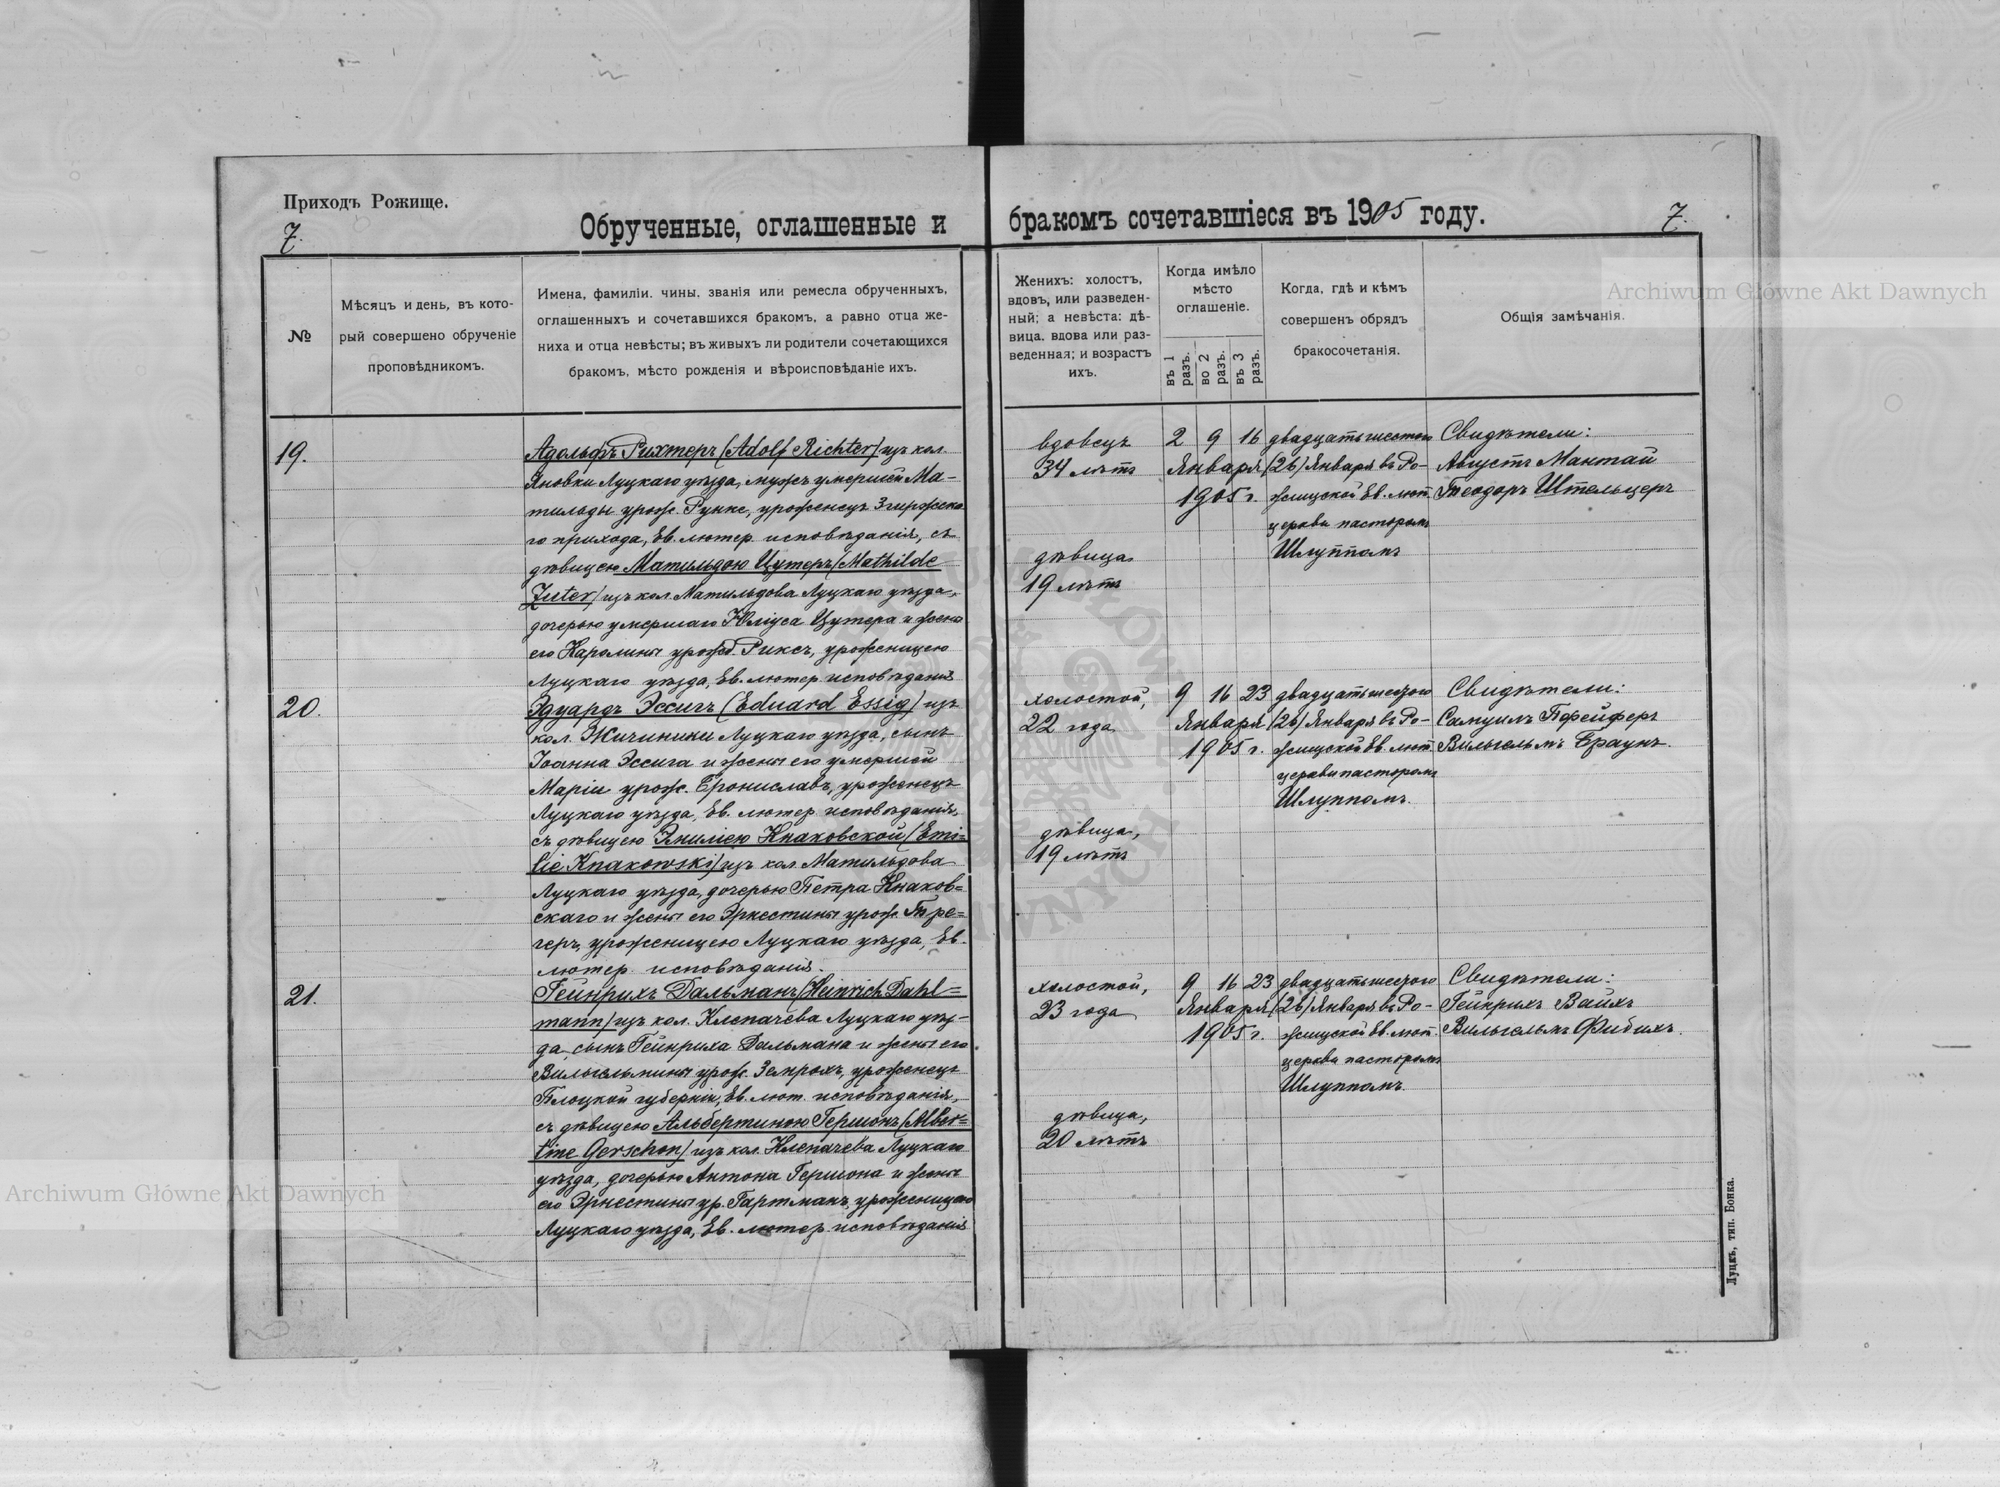 Приходъ Рожище.
7.
Обрученные, оглашенные и
бракомъ сочетавшіеся въ 1905 году.
7.
№
Мѣсяцъ и день, въ кото-
рый совершено обрученіе
проповѣдникомъ.
Имена, фамиліи, чины, званія или ремесла обрученныхъ,
оглашенныхъ и сочетавшихся бракомъ, а равно отца же-
ниха и отца невѣсты; въ живыхъ ли родители сочетающихся
бракомъ, мѣсто рожденія и вѣроисповѣданіе ихъ.
Женихъ: холостъ,
вдовъ, или разведен-
ный; а невѣста: дѣ-
вица, вдова или раз-
веденная; и возрастъ
ихъ.
Когда имѣло
мѣсто
оглашеніе.
въ 1 разъ.
во 2 разъ.
въ 3 разъ.
Когда, гдѣ и кѣмъ
совершенъ обрядъ
бракосочетанія.
Общія замѣчанія.
19.
Адольфъ Рихтеръ (Adolf Richter) изъ кол.
Яновки Луцкаго уѣзда, мужъ умершей Ма-
тильды урож. Рункe, уроженецъ Згиржска-
го прихода, Ев. лютер. исповѣданія, съ
дѣвицею Матильдою Цутеръ (Mathilde
Zuter) изъ кол. Матильдова Луцкаго уѣзда,
дочерью умершаго Юліуса Цутера и жены
его Каролины урожд. Риксъ, уроженицею
Луцкаго уѣзда, Ев. лютер. исповѣданія
вдовецъ
34 лѣтъ
дѣвица
19 лѣтъ
2 9 16
Января
1905 г.
двадцать шестого
(26) Января въ Ро-
жищской Ев. лют.
церкви пасторомъ
Шлуппомъ
Свидѣтели:
Августъ Мантай
Теодоръ Штельцеръ
20.
Эдуардъ Эссигъ (Eduard Essig) изъ
кол. Жичиники Луцкаго уѣзда, сынъ
Іоанна Эссига и жены его умершей
Маріи урож. Брониславъ, уроженецъ
Луцкаго уѣзда, Ев. лютер. исповѣданія,
съ дѣвицею Эмиліею Кнаковской (Emi-
lie Knakowski) изъ кол. Матильдова
Луцкаго уѣзда, дочерью Петра Кнаков-
скаго и жены его Эрнестины урож. Тре-
геръ, уроженицею Луцкаго уѣзда, Ев.
лютер. исповѣданія.
холостой,
22 года
дѣвица,
19 лѣтъ
9 16 23
Января
1905 г.
двадцать шестого
(26) Января въ Ро-
жищской Ев. лют.
церкви пасторомъ
Шлуппомъ.
Свидѣтели:
Самуилъ Пфейферъ
Вильгельмъ Браунъ.
21.
Гейнрихъ Дальманъ (Heinrich Dahl-
mann) изъ кол. Клепачева Луцкаго уѣз-
да, сынъ Гейнриха Дальмана и жены его
Вильгельмины урож. Земрохъ, уроженецъ
Плоцкой губерніи, Ев. лют. исповѣданія,
съ дѣвицею Альбертиною Гершонъ (Alber-
tine Gerschon) изъ кол. Клепачева Луцкаго
уѣзда, дочерью Антона Гершона и жены
его Эрнестины ур. Гартманъ, уроженицею
Луцкаго уѣзда, Ев. лютер. исповѣданія
холостой,
23 года
дѣвица,
20 лѣтъ
9 16 23
Января
1905 г.
двадцать шестого
(26) Января въ Ро-
жищской Ев. лют.
церкви пасторомъ
Шлуппомъ.
Свидѣтели:
Гейнрихъ Вайхъ
Вильгельмъ Фибихъ.
Луцкъ, тип. Бонка.
Archiwum Główne Akt Dawnych
Archiwum Główne Akt Dawnych